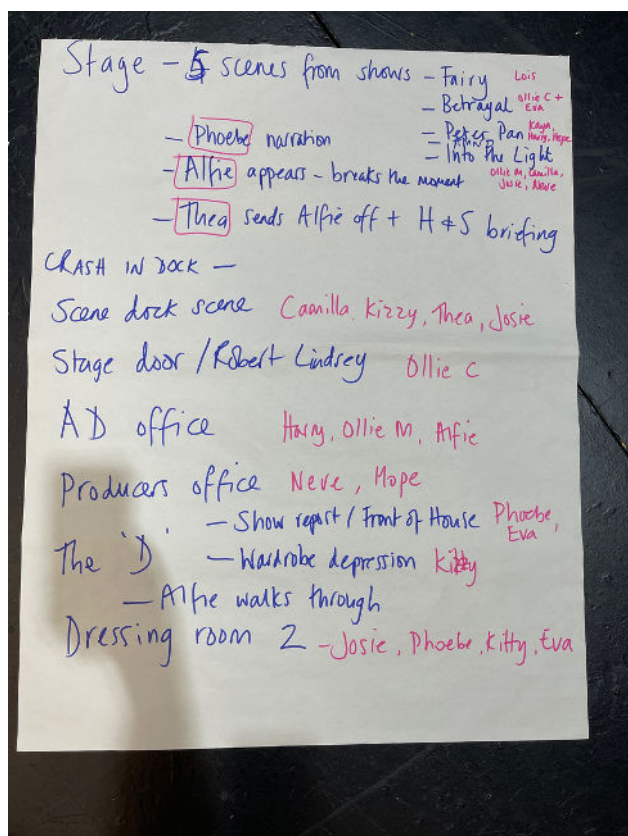 Stage - 5 scenes from shows - Fairy Lois
- Betrayal Ollie C + Eva
- Peter Pan Kaya, Harry, Hope
- Phoebe narration
- Into the Light Ollie M, Camilla, Josie, Neve
- Alfie appears - breaks the moment
- Thea sends Alfie off + H & S briefing
CRASH IN DOCK -
Scene dock scene Camilla, Kizzy, Thea, Josie
Stage door / Robert Lindsey Ollie C
AD office Harry, Ollie M, Alfie
Producers office Neve, Hope
- Show report / Front of House Phoebe, Eva
The 'D' - Wardrobe depression Kitty
- Alfie walks through
Dressing room 2 - Josie, Phoebe, Kitty, Eva